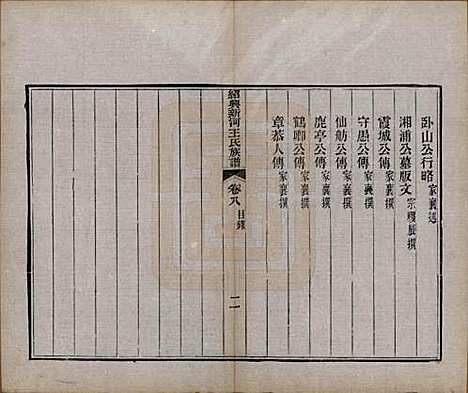 卧山公行略家襄述
湘浦公墓版文宗稷辰撰
霞城公傳家襄撰
守愚公傳家襄撰
仙舫公傳家襄撰
鹿亭公傳家襄撰
鶴聊公傳家襄撰
章恭人傳家襄撰
紹興新河王氏族譜 卷八 目錄 二